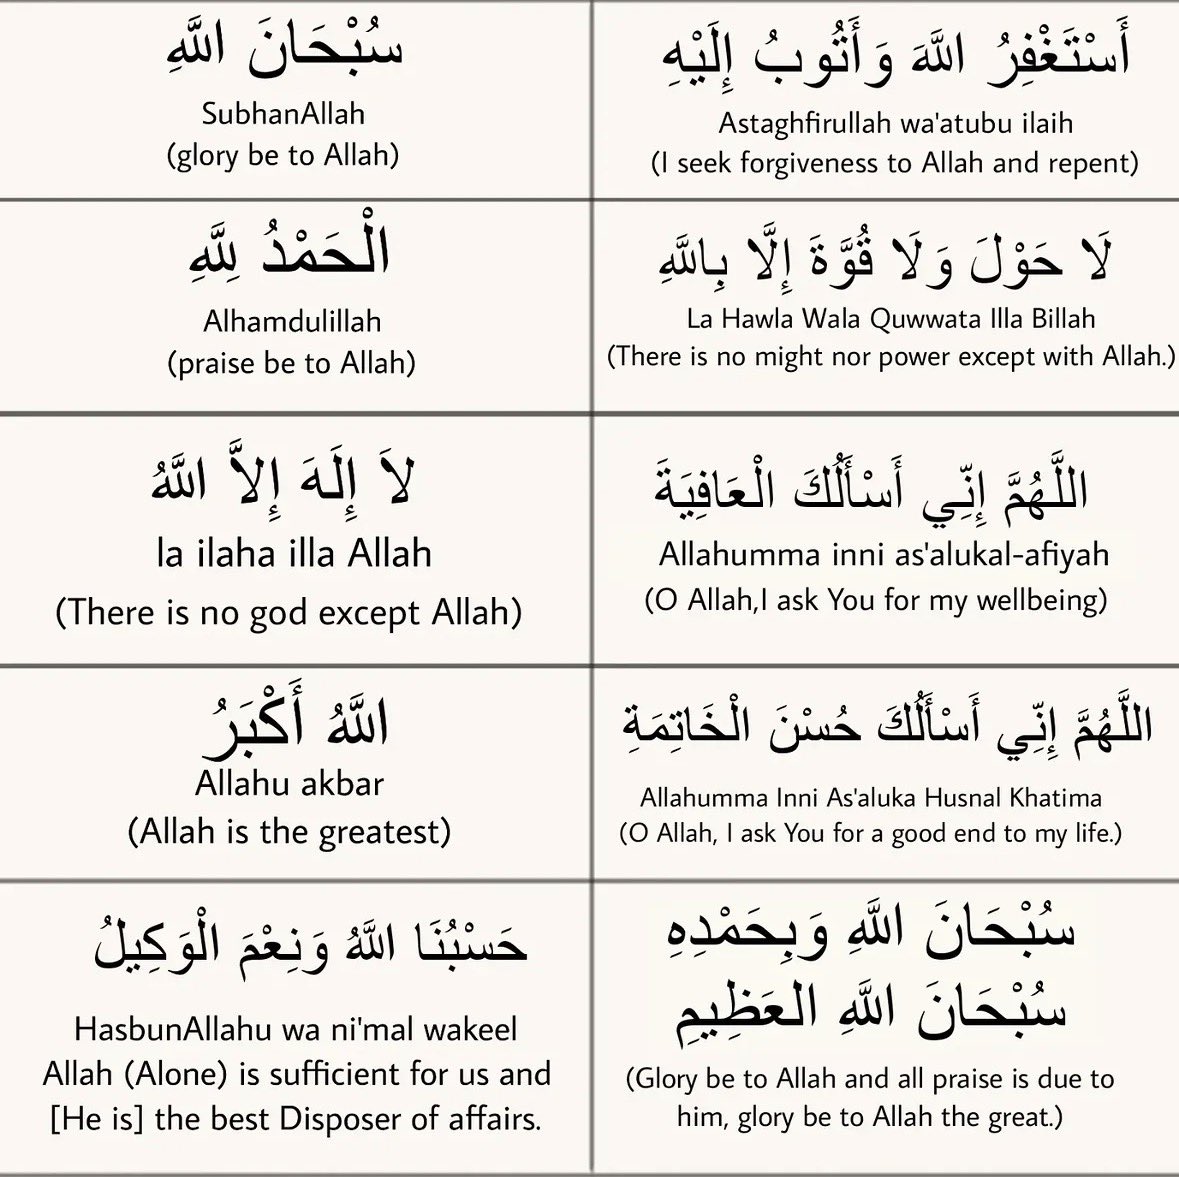 سُبْحَانَ اللَّهِ
SubhanAllah
(glory be to Allah)
أَسْتَغْفِرُ اللَّهَ وَأَتُوبُ إِلَيْهِ
Astaghfirullah wa'atubu ilaih
(I seek forgiveness to Allah and repent)
الْحَمْدُ لِلَّهِ
Alhamdulillah
(praise be to Allah)
لَا حَوْلَ وَلَا قُوَّةَ إِلَّا بِاللَّهِ
La Hawla Wala Quwwata Illa Billah
(There is no might nor power except with Allah.)
لاَ إِلَهَ إِلاَّ اللَّهُ
la ilaha illa Allah
(There is no god except Allah)
اللَّهُمَّ إِنِّي أَسْأَلُكَ الْعَافِيَةَ
Allahumma inni as'alukal-afiyah
(O Allah,I ask You for my wellbeing)
اللَّهُ أَكْبَرُ
Allahu akbar
(Allah is the greatest)
اللَّهُمَّ إِنِّي أَسْأَلُكَ حُسْنَ الْخَاتِمَةِ
Allahumma Inni As'aluka Husnal Khatima
(O Allah, I ask You for a good end to my life.)
حَسْبُنَا اللَّهُ وَنِعْمَ الْوَكِيلُ
HasbunAllahu wa ni'mal wakeel
Allah (Alone) is sufficient for us and
[He is] the best Disposer of affairs.
سُبْحَانَ اللَّهِ وَبِحَمْدِهِ
سُبْحَانَ اللَّهِ العَظِيمِ
(Glory be to Allah and all praise is due to
him, glory be to Allah the great.)